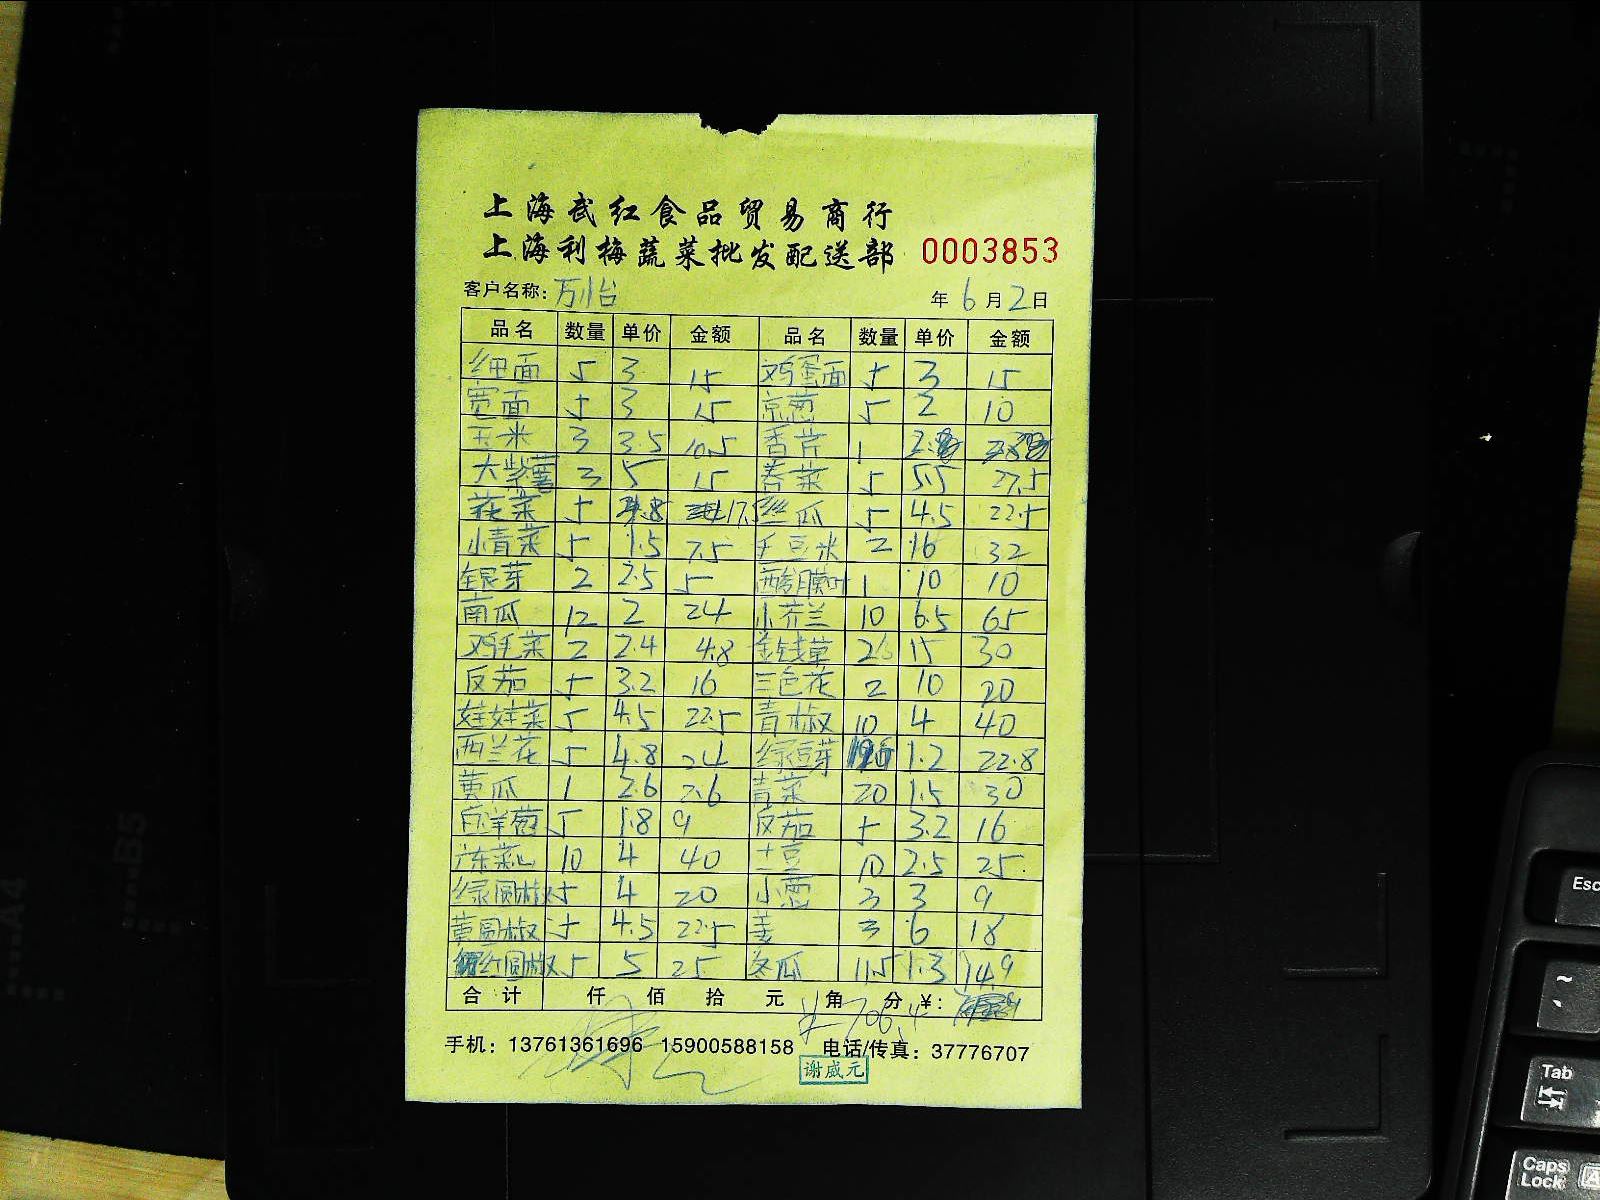 上海武红食品贸易商行
上海利梅蔬菜批发配送部 0003853
客户名称: 万怡 年 6 月 2 日
品名 数量 单价 金额 品名 数量 单价 金额
细面 5 3 15 鸡蛋面 5 3 15
宽面 5 3 15 京葱 5 2 10
玉米 3 3.5 10.5 香芹 1
大紫薯 3 5 15 春菜 5 5.5 27.5
花菜 5 17.5 丝瓜 5 4.5 22.5
小青菜 5 1.5 7.5 毛豆米 2 16 32
银芽 2 2.5 5 1 10 10
南瓜 12 2 24 小芥兰 10 6.5 65
鸡毛菜 2 2.4 4.8 金钱草 2 15 30
反茄 5 3.2 16 三色花 2 10 20
娃娃菜 5 4.5 22.5 青椒 10 4 40
西兰花 5 4.8 24 绿豆芽 1.2 22.8
黄瓜 1 2.6 2.6 青菜 20 1.5 30
白洋葱 5 1.8 9 反茄 5 3.2 16
广东菜心 10 4 40 土豆 10 2.5 25
绿圆椒 5 4 20 小葱 3 3 9
黄圆椒 5 4.5 22.5 姜 3 6 18
红圆椒 5 5 25 冬瓜 11.5 1.3 14.9
合计 仟 佰 拾 元 角 分 ¥: 706.4
手机: 13761361696 15900588158 电话/传真: 37776707
谢威元
A4
B5
Esc
~
Tab
Caps Lock